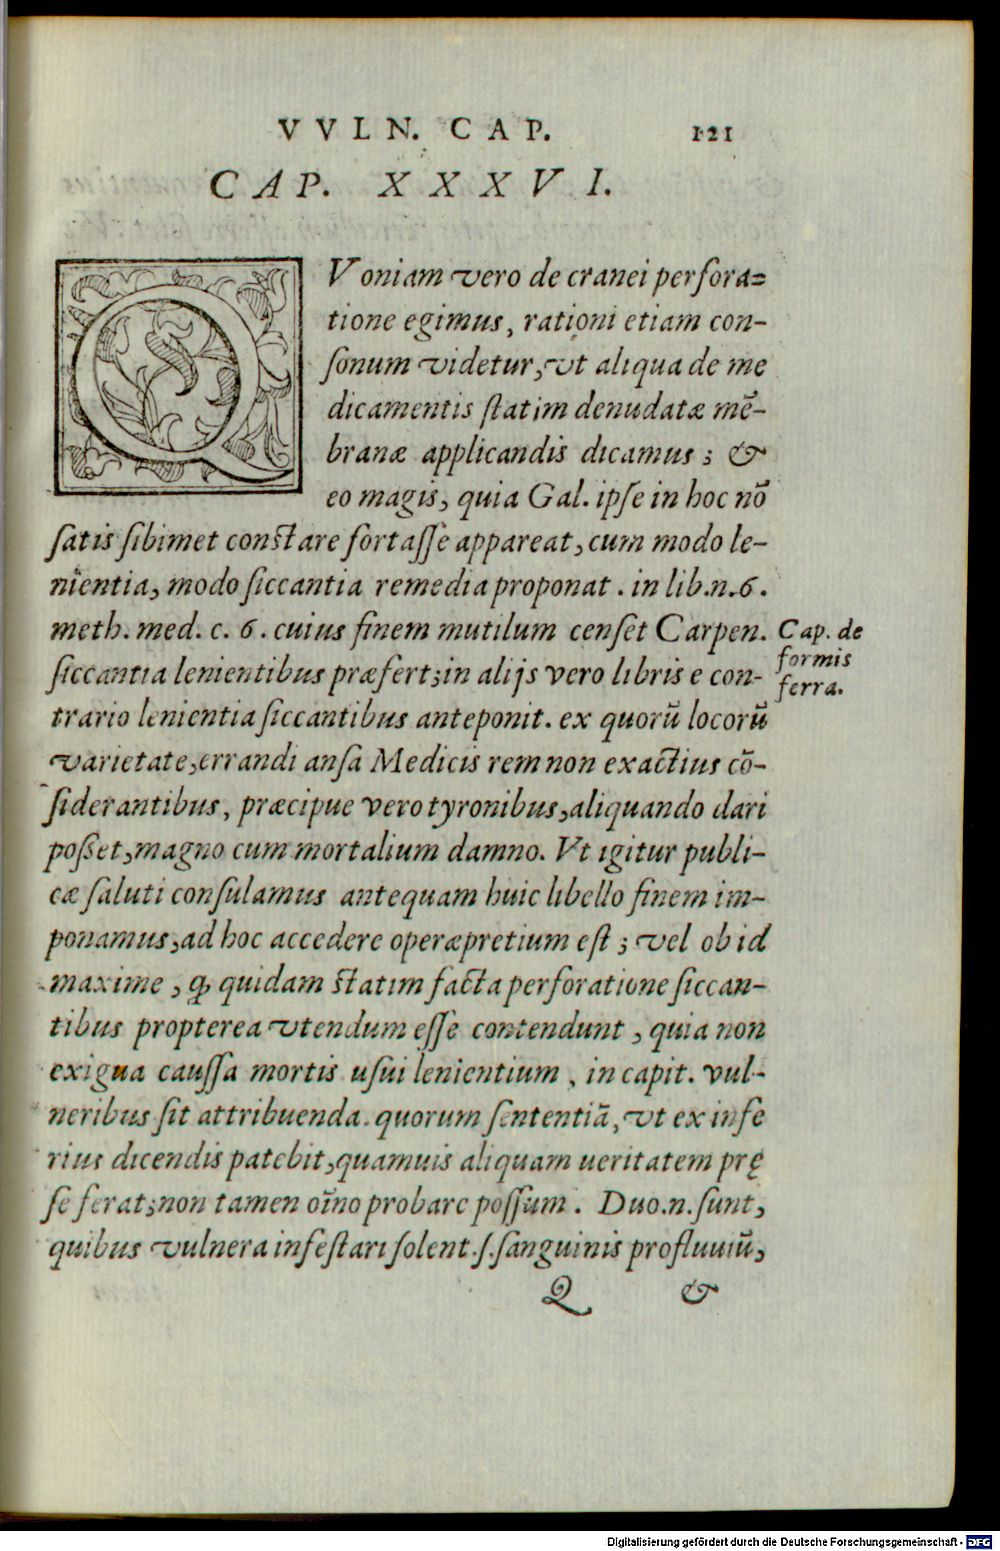 VVLN. CAP. 121
CAP. XXXVI.
QVoniam vero de cranei perfora=
tione egimus, rationi etiam con-
sonum videtur, vt aliqua de me
dicamentis statim denudatæ mē-
branæ applicandis dicamus; &
eo magis, quia Gal. ipse in hoc nō
satis sibimet constare fortasse appareat, cum modo le-
nientia, modo siccantia remedia proponat. in lib.n.6.
meth. med. c. 6. cuius finem mutilum censet Carpen.
siccantia lenientibus præfert; in alijs vero libris e con-
trario lenientia siccantibus anteponit. ex quorū locorū
varietate, errandi ansa Medicis rem non exactius cō-
siderantibus, præcipue vero tyronibus, aliquando dari
posset, magno cum mortalium damno. Vt igitur publi-
cæ saluti consulamus antequam huic libello finem im-
ponamus, ad hoc accedere operæpretium est; vel ob id
maxime, ꝙ quidam statim facta perforatione siccan-
tibus propterea vtendum esse contendunt, quia non
exigua caussa mortis usui lenientium, in capit. vul-
neribus sit attribuenda. quorum sententiā, vt ex infe
rius dicendis patebit, quamuis aliquam ueritatem prę
se ferat; non tamen oīno probare possum. Duo.n.sunt,
quibus vulnera infestari solent.s.sanguinis profluuiū,
Q &
Cap. de
formis
ferra.
Digitalisierung gefördert durch die Deutsche Forschungsgemeinschaft - DFG